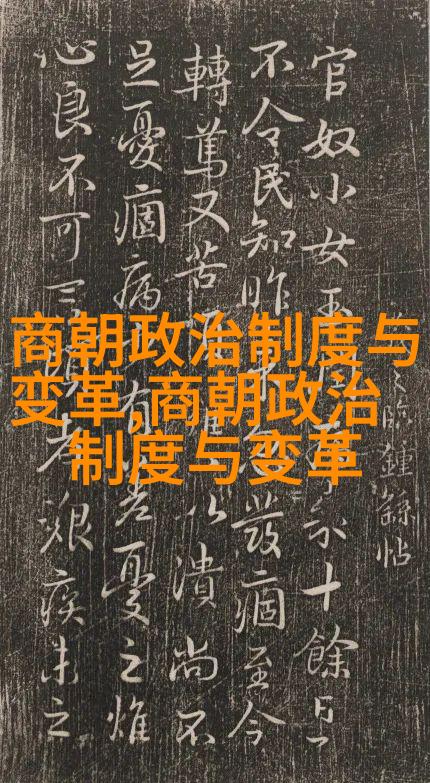 商朝政治制度与
变革,商朝政治
制度与变革
臨鍾繇帖
官奴小女玉 十餘日了
不令民知昨 發痼至今
轉篤又苦 以潰尚不
足憂痼病 有 憂之燋
心良不可言 者艱疾未之